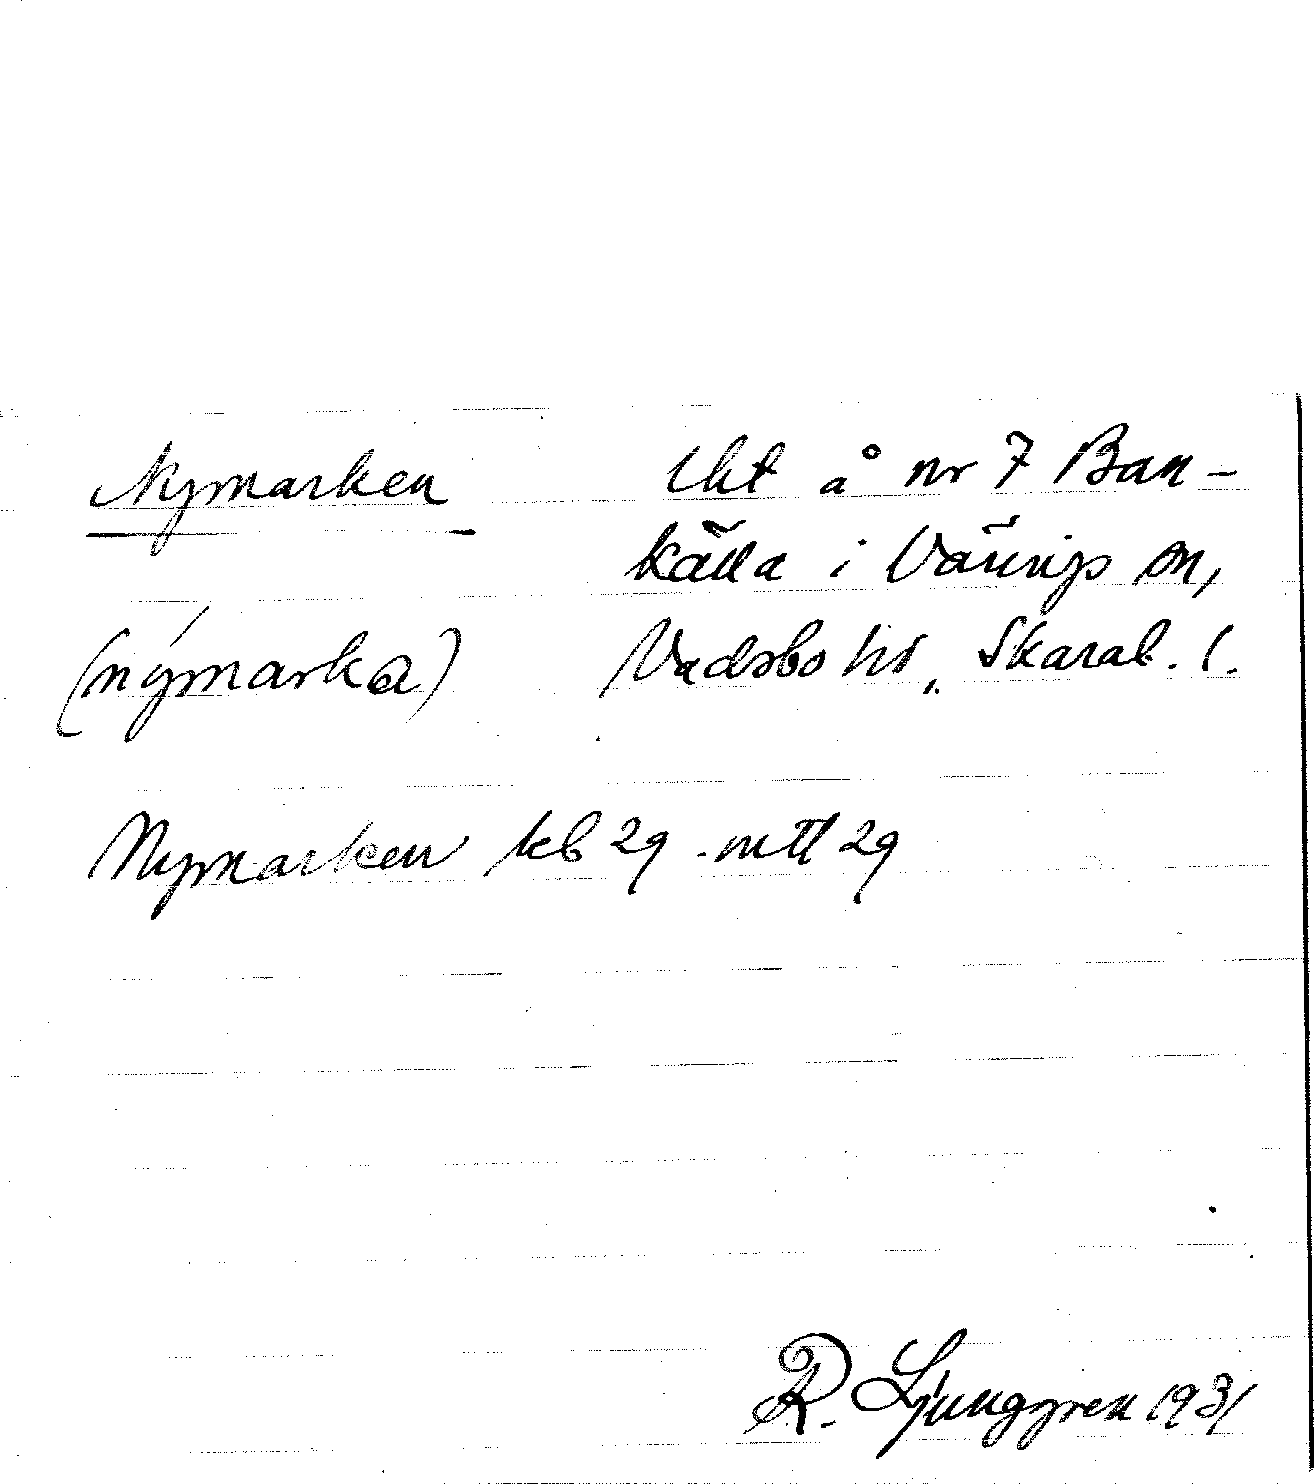 Nymarken
lht å nr 7 Ban-
källa i Värings sn,
(nýmarka)
Vadsbo hd, Skarab. l.
Nymarken kb 29 mtl 29
R. Ljunggren 1931